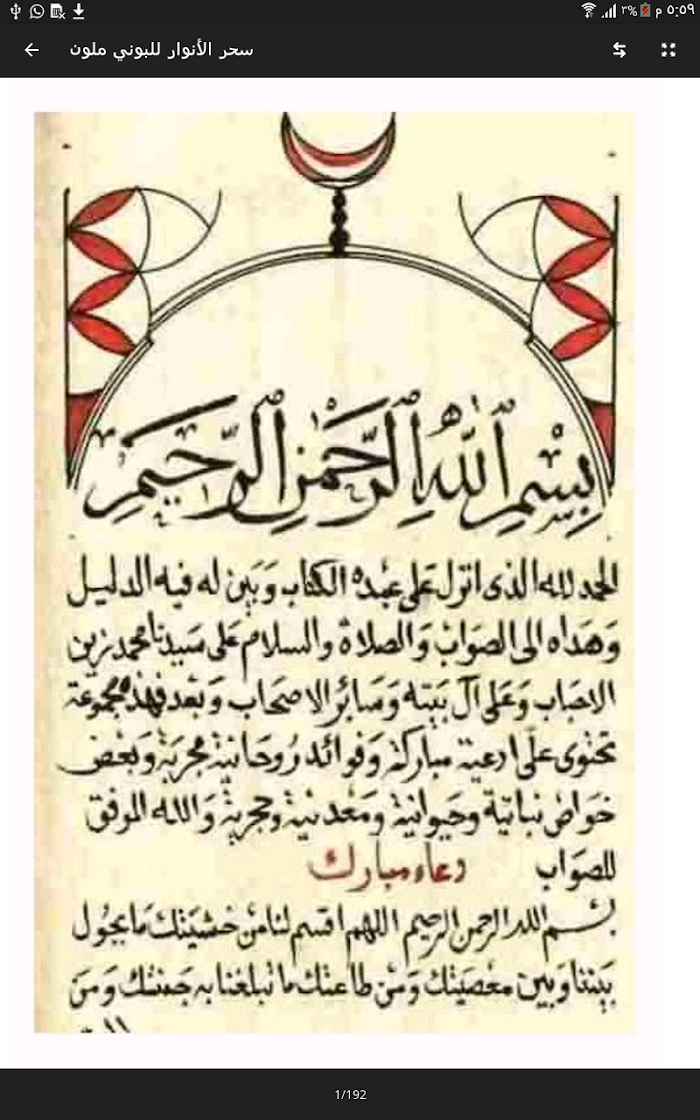 ٥:٥٩ م ٣%
سحر الأنوار للبوني ملون
بِسْمِ اللَّهِ الرَّحْمَنِ الرَّحِيمِ
الحمد لله الذى انزل على عبده الكتاب وَبَيَّن له فيه الدليل
وَهَداه الى الصوَاب وَالصلاة والسلام عَلى سَيدنا محمد زين
الاحبَاب وَعَلى آل بَيته وَسَائر الاصحَاب وَبَعد فهذه مجموعة
تحتوى على ادعية مباركة وَفوائد رُوحَانية مجربَة وَبَعض
خوَاص نباتية وحيوانية وَمَعدنية وحجرية وَالله الموفق
للصوَاب دعاء مبارك
بسم الله الرحمن الرحيم اللهم اقسم لنا من خشيَتك مَا يحُول
بَيننا وَبين معصيَتك وَمن طاعتك ما تبلغنا به جَنتك وَمن
1/192